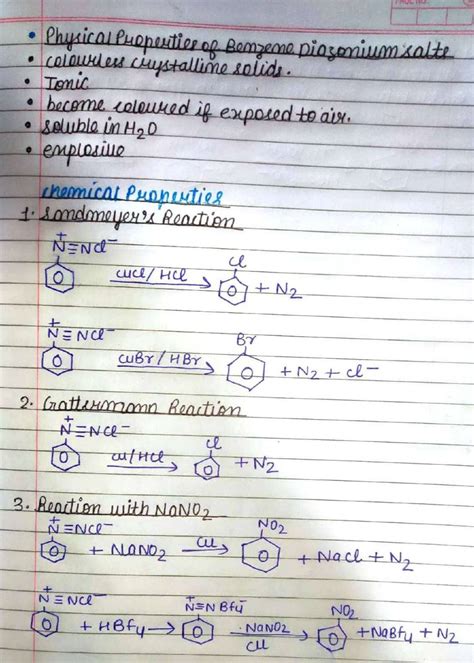 PAGE NO.
• Physical Properties of Benzene Diazonium salts
• colourless crystalline solids.
• Ionic
• become coloured if exposed to air.
• soluble in H2O
• explosive
chemical Properties
1. Sandmeyer's Reaction
N⁺≡NCl⁻ CuCl/HCl → Cl + N2
N⁺≡NCl⁻ CuBr/HBr → Br + N2 + Cl⁻
2. Gattermann Reaction
N⁺≡NCl⁻ Cu/HCl → Cl + N2
3. Reaction with NaNO2
N⁺≡NCl⁻ + NaNO2 Cu → NO2 + NaCl + N2
N⁺≡NCl⁻ + HBF4 → N⁺≡N BF4⁻ NaNO2 Cu → NO2 + NaBF4 + N2